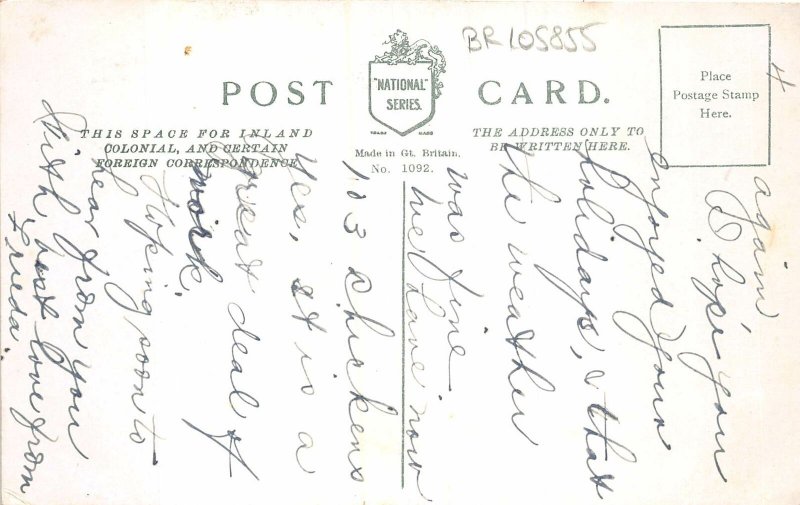 BR105855
4
POST CARD.
"NATIONAL"
SERIES.
TRADE MARK
THIS SPACE FOR INLAND
COLONIAL, AND CERTAIN
FOREIGN CORRESPONDENCE
Made in Gt. Britain.
No. 1092.
THE ADDRESS ONLY TO
BE WRITTEN HERE.
Place
Postage Stamp
Here.
again,
I hope you
enjoyed your
holidays, & that
the weather
was fine
We have now
103 chickens
Yes, it is a
great deal of
work.
Hoping soon to
hear from you
With best love from
Frieda